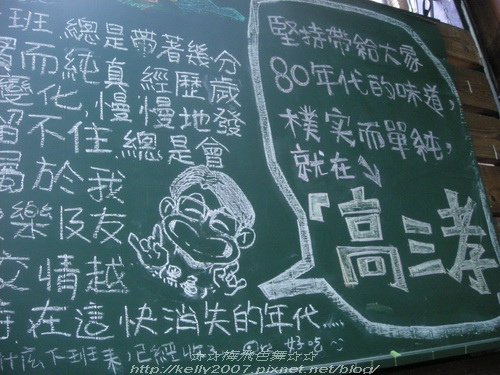 班 總是帶著幾分
而純真 經歷歲
變化,慢慢地發
留不住,總是會
屬於我
樂及友
交情越
存在這快消失的年代....
什麼下班來,已經
好嗎
堅持帶給大家
80年代的味道,
樸实而單純,
就在↘
「高三孝
☆☆梅飛色舞☆☆
http://kelly2007.pixnet.net/blog/